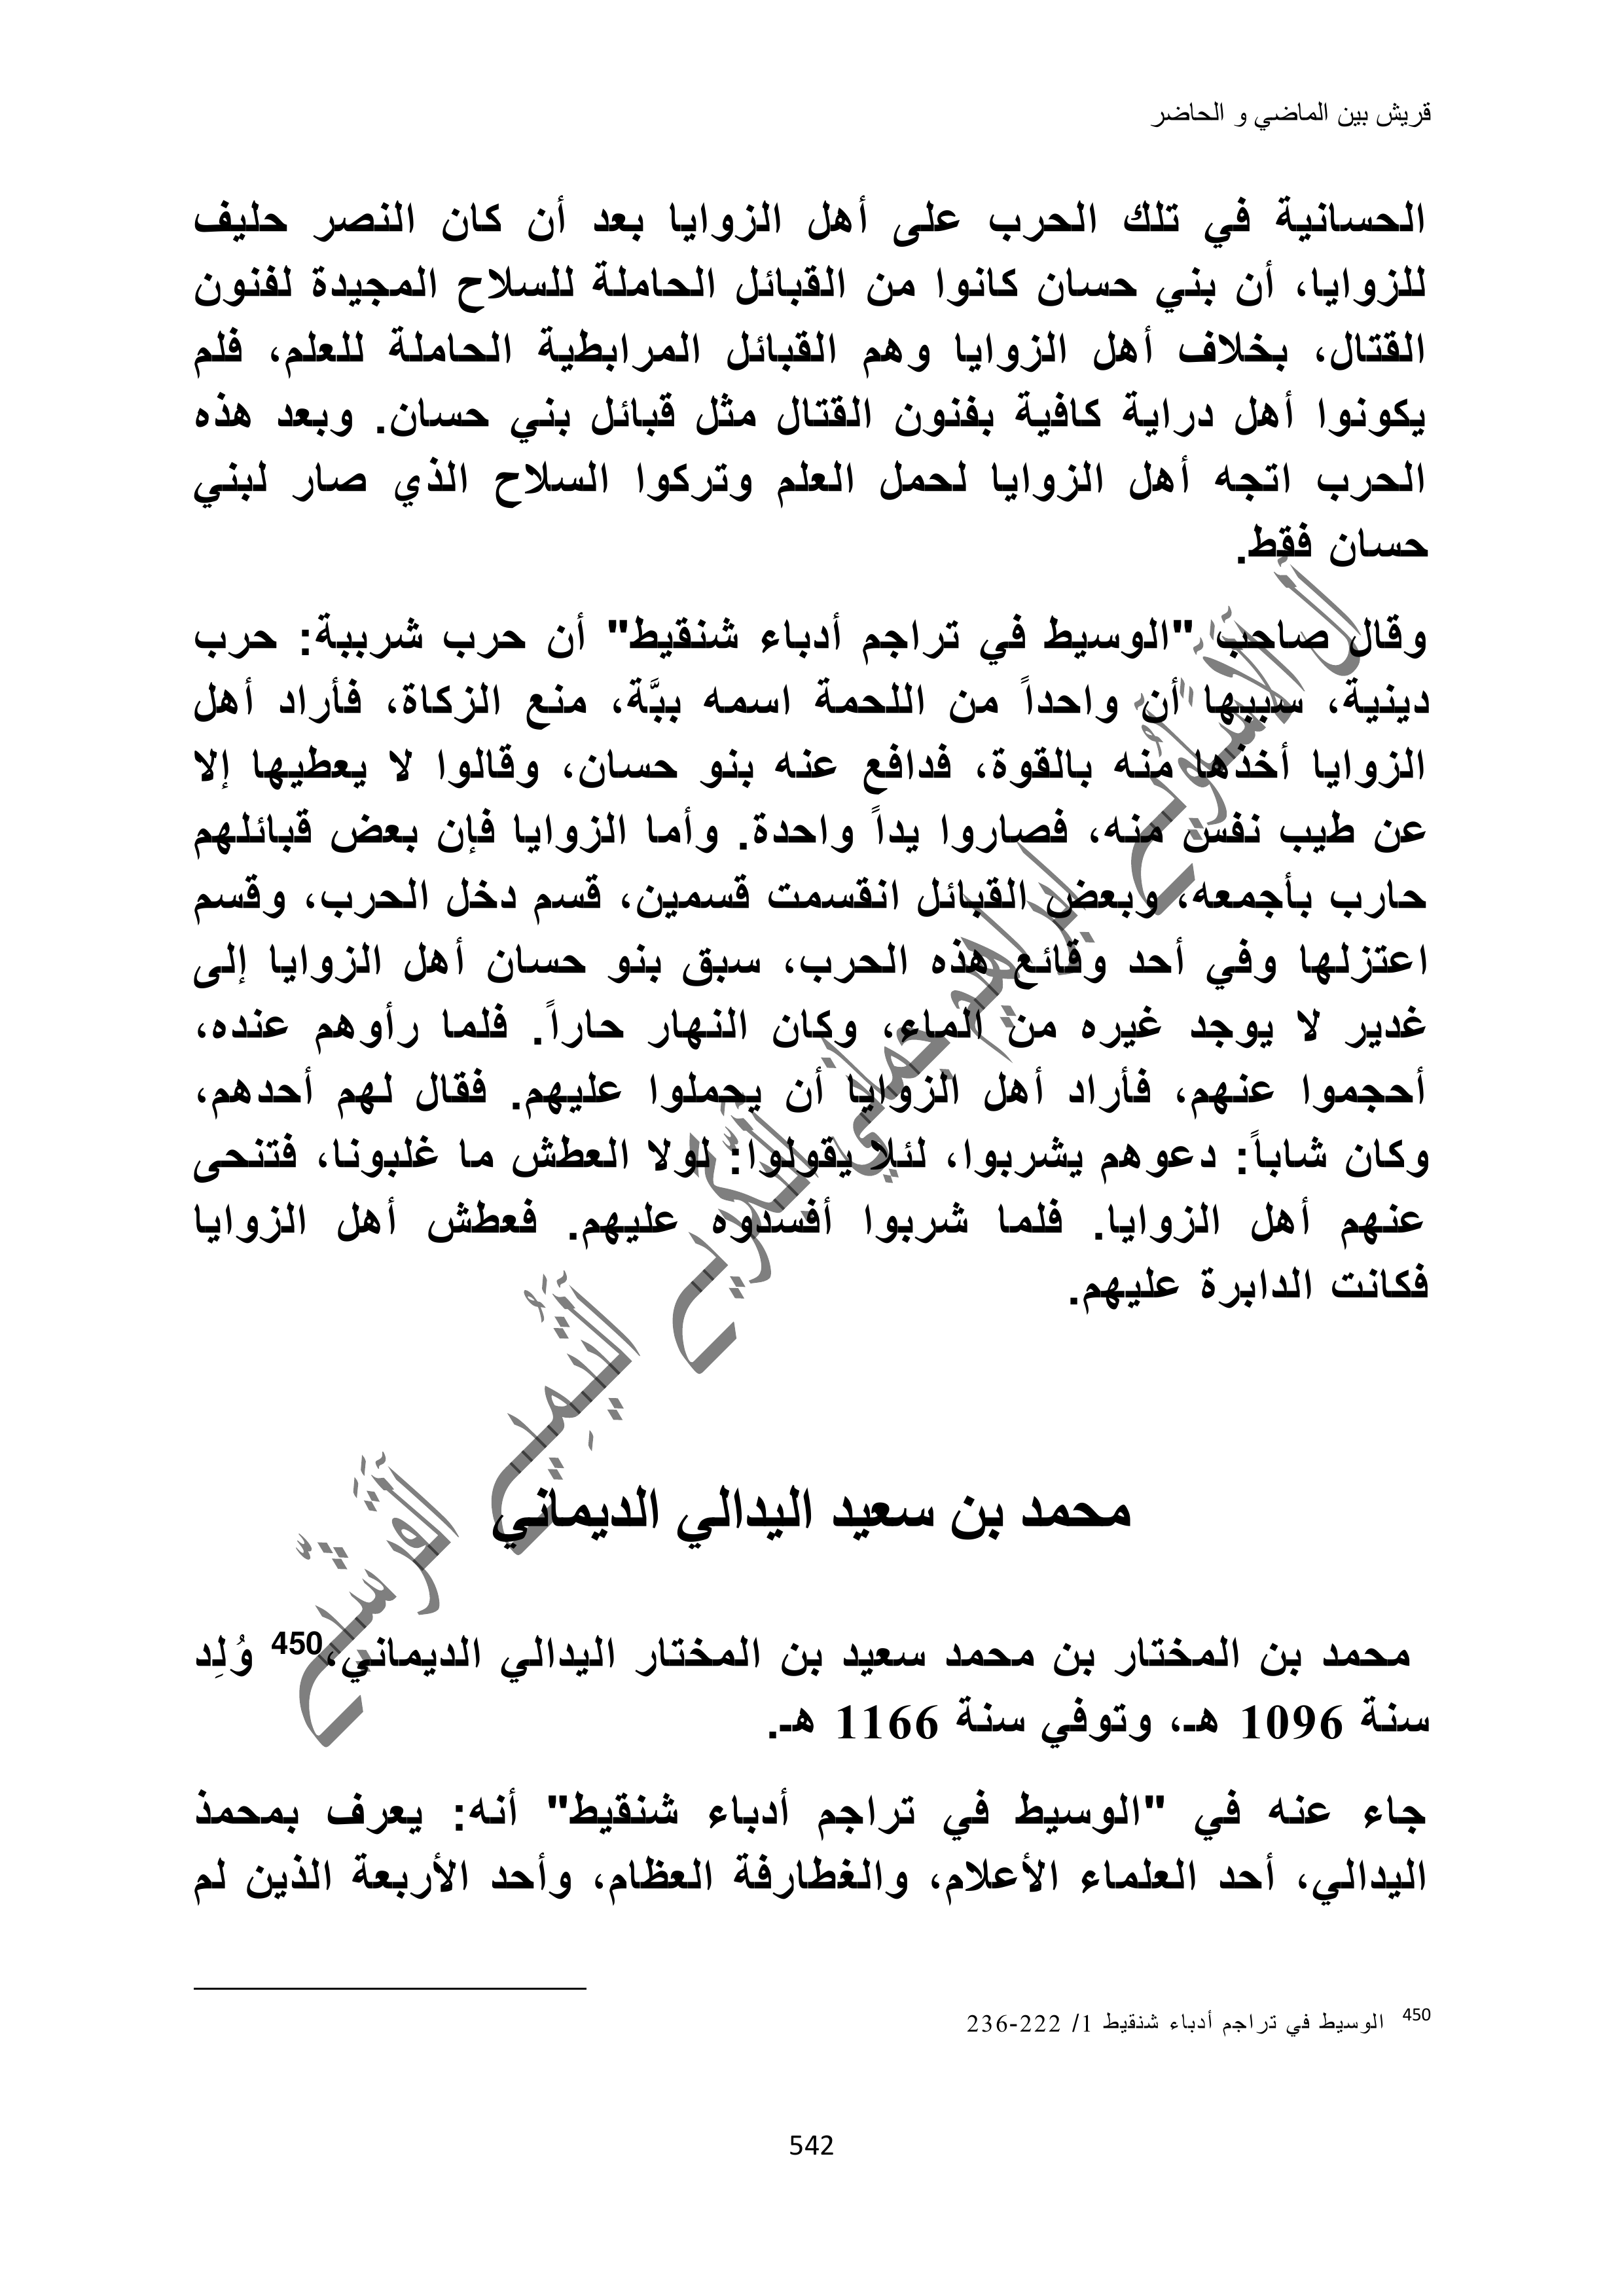 قريش بين الماضي و الحاضر
الحسانية في تلك الحرب على أهل الزوايا بعد أن كان النصر حليف
للزوايا، أن بني حسان كانوا من القبائل الحاملة للسلاح المجيدة لفنون
القتال، بخلاف أهل الزوايا وهم القبائل المرابطية الحاملة للعلم، فلم
يكونوا أهل دراية كافية بفنون القتال مثل قبائل بني حسان. وبعد هذه
الحرب اتجه أهل الزوايا لحمل العلم وتركوا السلاح الذي صار لبني
حسان فقط.
وقال صاحب "الوسيط في تراجم أدباء شنقيط" أن حرب شرببة: حرب
دينية، سببها أن واحداً من اللحمة اسمه ببَّة، منع الزكاة، فأراد أهل
الزوايا أخذها منه بالقوة، فدافع عنه بنو حسان، وقالوا لا يعطيها إلا
عن طيب نفس منه، فصاروا يداً واحدة. وأما الزوايا فإن بعض قبائلهم
حارب بأجمعه، وبعض القبائل انقسمت قسمين، قسم دخل الحرب، وقسم
اعتزلها وفي أحد وقائع هذه الحرب، سبق بنو حسان أهل الزوايا إلى
غدير لا يوجد غيره من الماء، وكان النهار حاراً. فلما رأوهم عنده،
أحجموا عنهم، فأراد أهل الزوايا أن يحملوا عليهم. فقال لهم أحدهم،
وكان شاباً: دعوهم يشربوا، لئلا يقولوا: لولا العطش ما غلبونا، فتنحى
عنهم أهل الزوايا. فلما شربوا أفسدوه عليهم. فعطش أهل الزوايا
فكانت الدابرة عليهم.
محمد بن سعيد اليدالي الديماني
محمد بن المختار بن محمد سعيد بن المختار اليدالي الديماني،450 وُلِد
سنة 1096 هـ، وتوفي سنة 1166 هـ.
جاء عنه في "الوسيط في تراجم أدباء شنقيط" أنه: يعرف بمحمذ
اليدالي، أحد العلماء الأعلام، والغطارفة العظام، وأحد الأربعة الذين لم
450 الوسيط في تراجم أدباء شنقيط 1/ 222-236
542